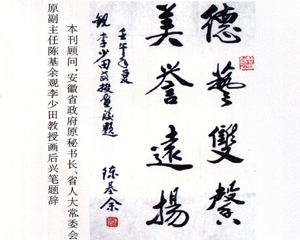 德艺双馨
美誉远扬
壬午年夏
观李少田教授画展题
陈基余
本刊顾问,安徽省政府原秘书长、省人大常委会
原副主任陈基余观李少田教授画后兴笔题辞